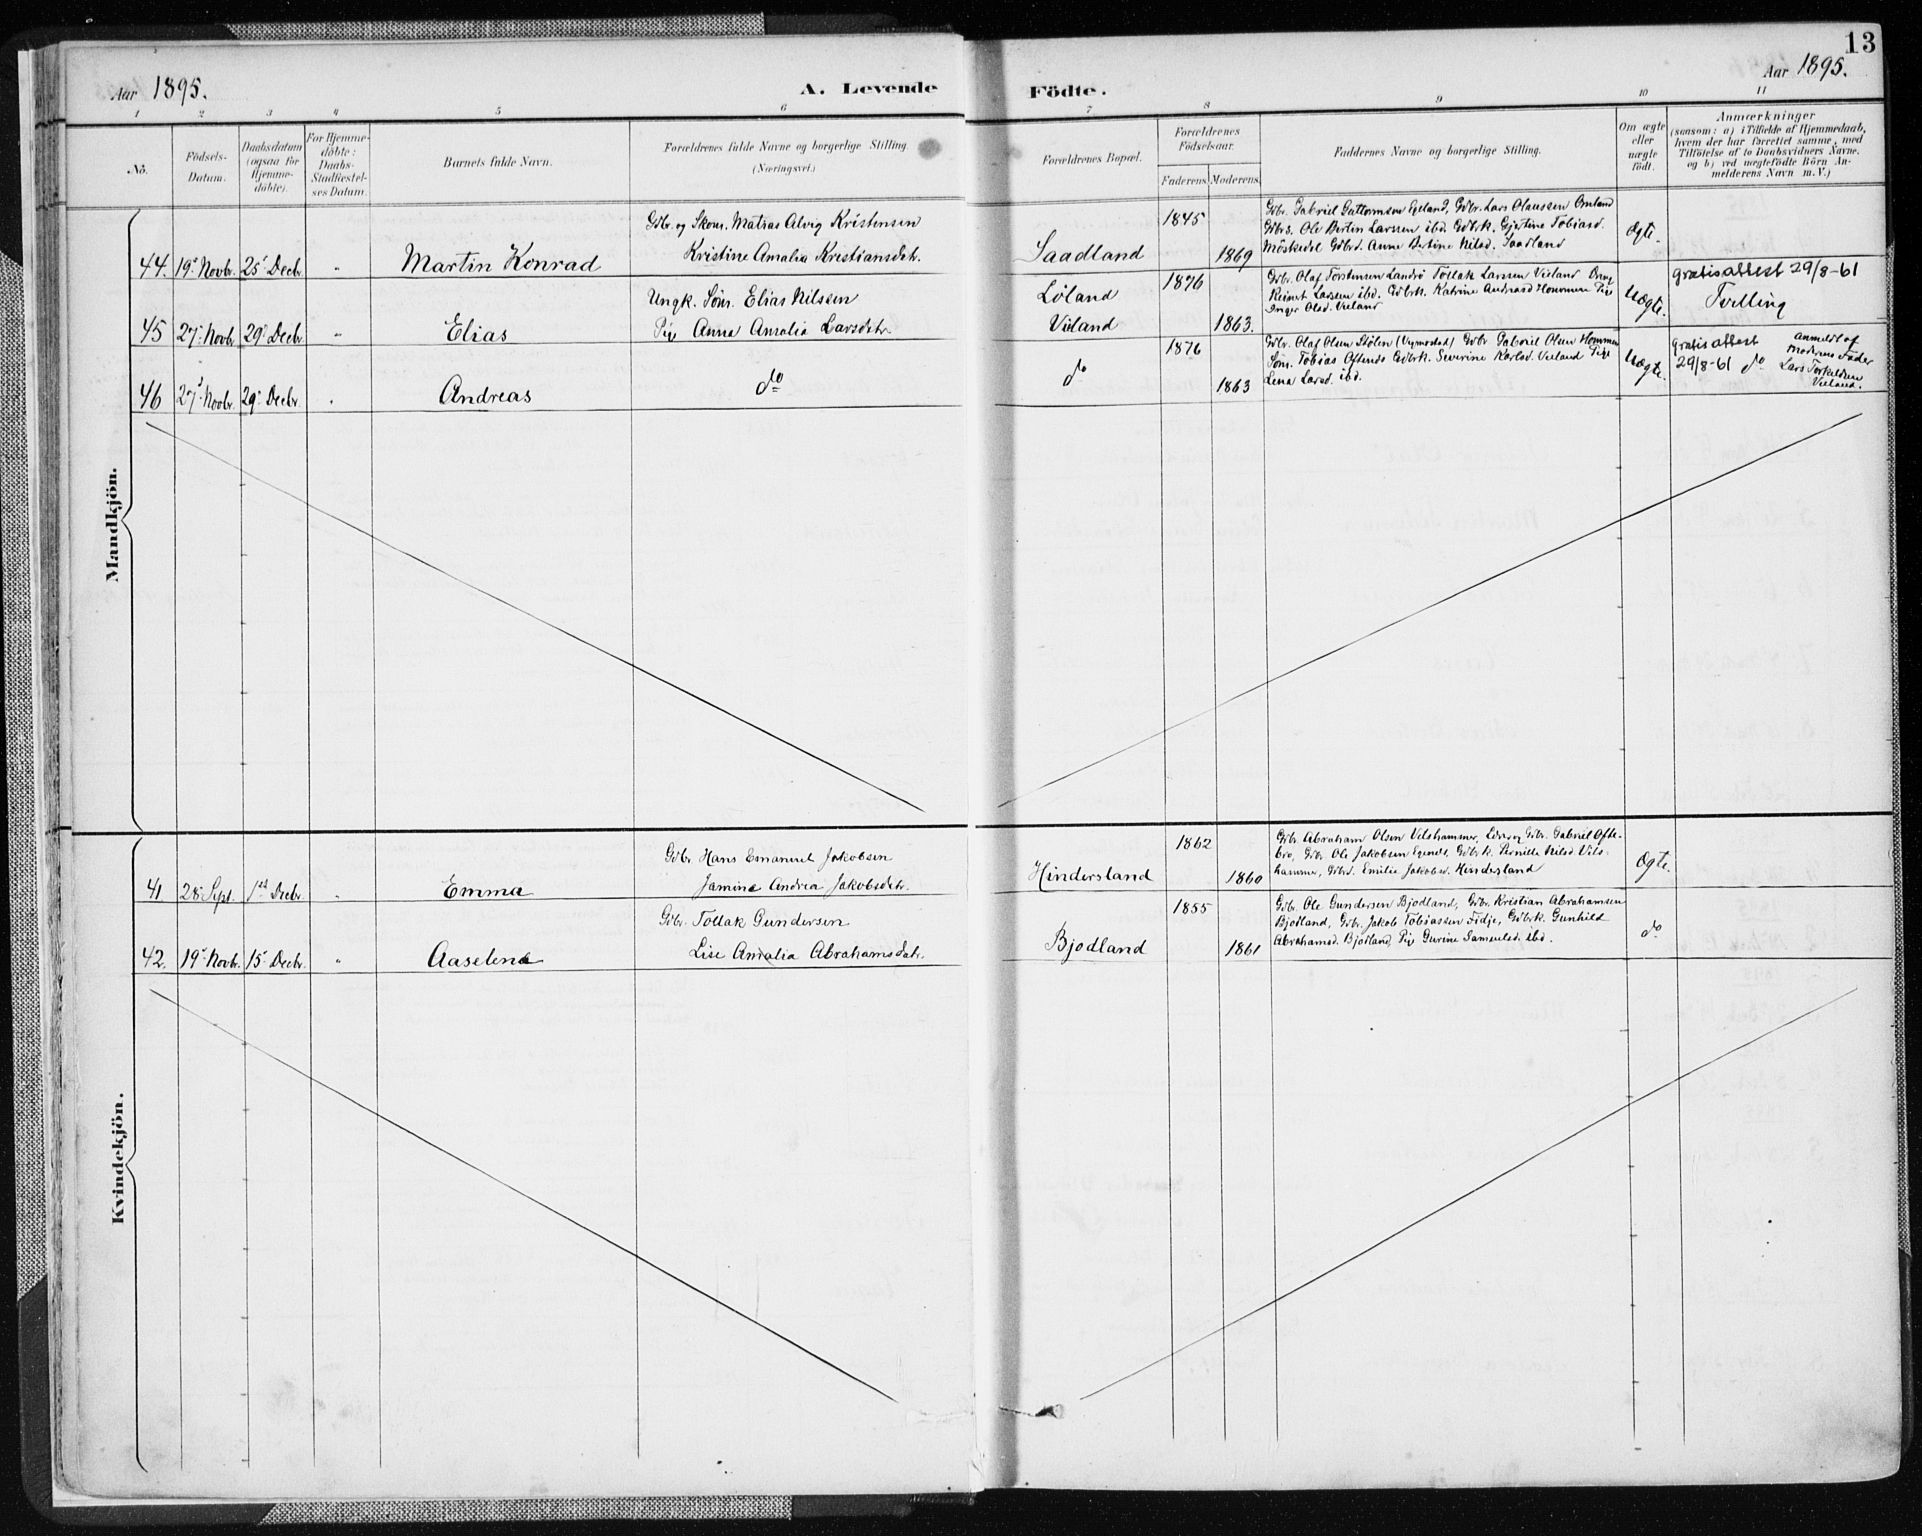 13
Aar 1895.
A. Levende
Födte.
Aar 1895.
1 2 3 4 5 6 7 8 9 10 11
No.
Födsels-
Datum.
Daabsdatum
(ogsaa for
Hjemme-
döbte).
For Hjemme-
döbte:
Daabs-
Stadfæstel-
ses Datum.
Barnets fulde Navn.
Forældrenes fulde Navne og borgerlige Stilling
(Næringsvei.)
Forældrenes Bopæl.
Forældrenes
Födselsaar.
Faderens. Moderens.
Faddernes Navne og borgerlige Stilling.
Om ægte
eller
uægte
födt.
Anmærkninger
(saasom: a) i Tilfælde af Hjemmedaab,
hvem der har forrettet samme, med
Tilföielse af to Daabsvidners Navne.
og b) ved uægtefödte Börn An-
melderens Navn m.V.)
Mandkjön.
44. 19d Novbr. 25d Decbr. " Martin Konrad
Gbr. og Skom. Matias Alvig Kristensen
Kristine Amalia Kristiansdtr.
Saadland
1845
1869
Gdbr. Gabriel Guttormsen Egeland, Gdbr. Lars Olaussen Omland
Gdbrs. Ole Bertin Larssen ibd. Gdbrk. Gjertine Tobiasd.
Möskedal Gdbrd. Anne Bertine Nilsd. Saadland
Ægte.
45 27d Novbr. 29d Decbr. " Elias
Ungk. Søm. Elias Nilssen
Pige Anna Amalia Larsdtr.
Löland
Vieland
1876
1863.
Gdbr. Olaf Torstensen Landrö Tollak Larssen Vieland Dreng
Reinert Larssen ibd. Gdbrk. Katrine Andreasd Hommen Pige
Inger Olsd. Vieland
Uægte.
gratis attest 29/8-61
Tvilling
46 27d Novbr. 29d Decbr. " Andreas
do
do
1876
1863
Gdbr. Olaf Olsen Stölen (Vigmostad) Gdbr Gabriel Olsen Hommen
Søm. Tobias Oftenes Gdbrk. Severine Karlsd. Vieland Pige
Lena Larsd. ibd.
Uægte.
gratis attest
29/8-61 do
Anmeldt af
Moderens Fader
Lars Torkeldsen
Vieland.
Kvindekjön.
41 28 Sept. 1ste Decbr. " Emma
Gbr. Hans Emanuel Jakobsen
Jamine Andrea Jakobsdtr.
Hindersland
1862
1860
Gdbr. Abraham Olsen Vilshammer, Lærer og Gdbr. Gabriel Ofte-
bro, Gdbr. Ole Jakobsen Egenes, Gdbrk. Pernille Nilsd. Vils-
hammer, Gdbrd. Emilie Jakobsd. Hindersland
Ægte.
42. 19d Novbr. 15d Decbr. " Aaselene
Gbr. Tollak Gundersen
Lise Amalia Abrahamsdtr.
Bjodland
1855
1861
Gdbr. Ole Gundersen Bjodland, Gdbr. Kristian Abrahamsen
Bjodland, Gdbr. Jakob Tobiassen Fidje, Gdbrk. Gunhild
Abrahamsd. Bjodland, Pige Gurine Samuelsd. ibd.
do